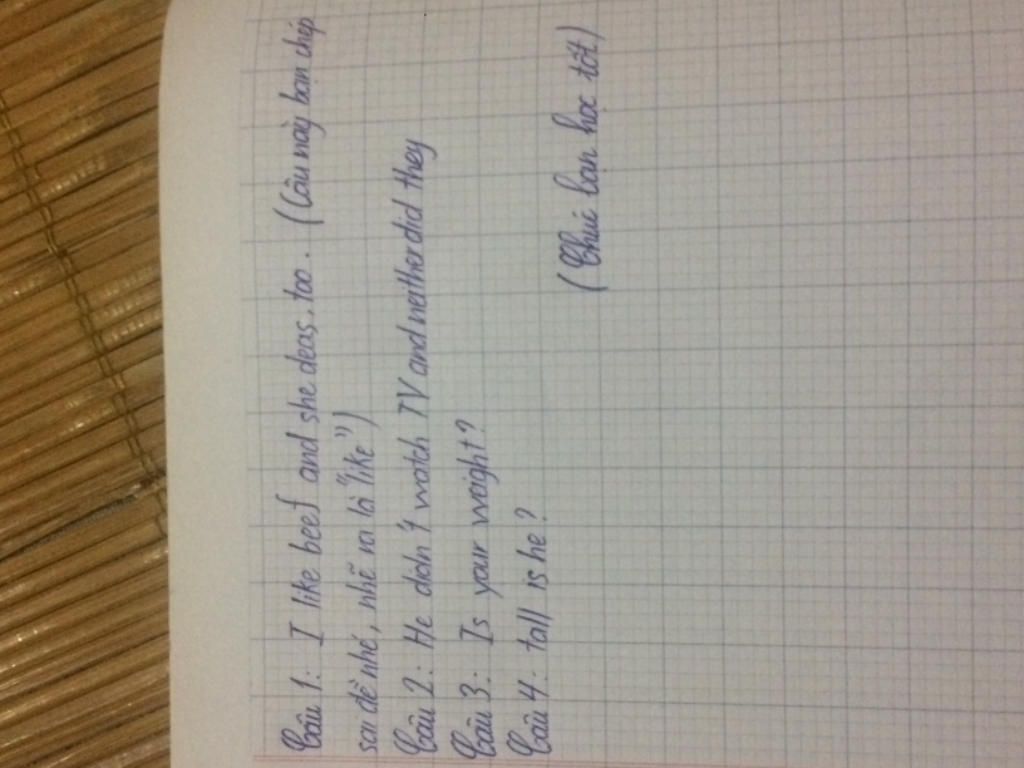 Câu 1: I like beef and she deas, too. (Câu này bạn chép
sai đề nhé, nhẽ ra là "like")
Câu 2: He didn't watch TV and neither did they
Câu 3: Is your weight?
Câu 4: tall is he?
(Chúc bạn học tốt)